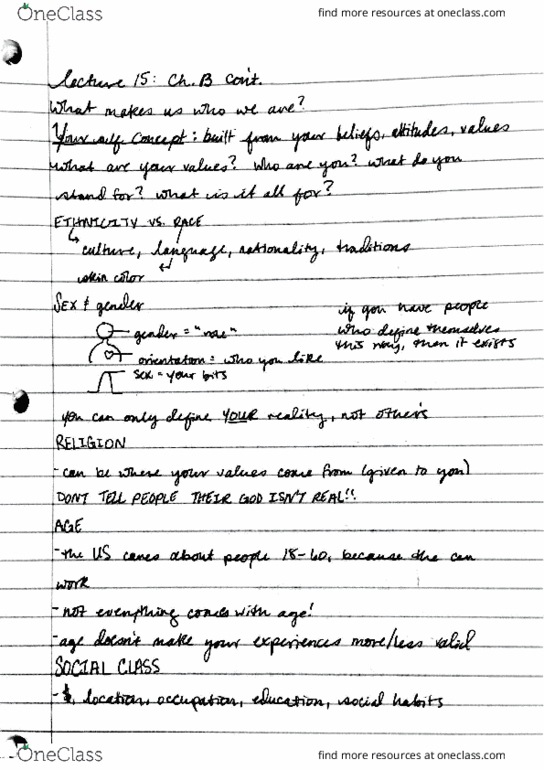 OneClass
find more resources at oneclass.com
Lecture 15: Ch. B con't.
What makes us who we are?
Your self concept: built from your beliefs, attitudes, values
what are your values? Who are you? what do you
stand for? what is it all for?
ETHNICITY VS. RACE
culture, language, nationality, traditions
skin color
SEX & gender
gender = "role"
orientation = who you like
sex = your bits
if you have people
who define themselves
this way, then it exists
you can only define YOUR reality, not others
RELIGION
- can be where your values come from (given to you)
DON'T TELL PEOPLE THEIR GOD ISN'T REAL!!
AGE
- the US cares about people 18-60, because the can
work
- not everything comes with age!
- age doesn't make your experiences more/less valid
SOCIAL CLASS
- $, location, occupation, education, social habits
OneClass
find more resources at oneclass.com